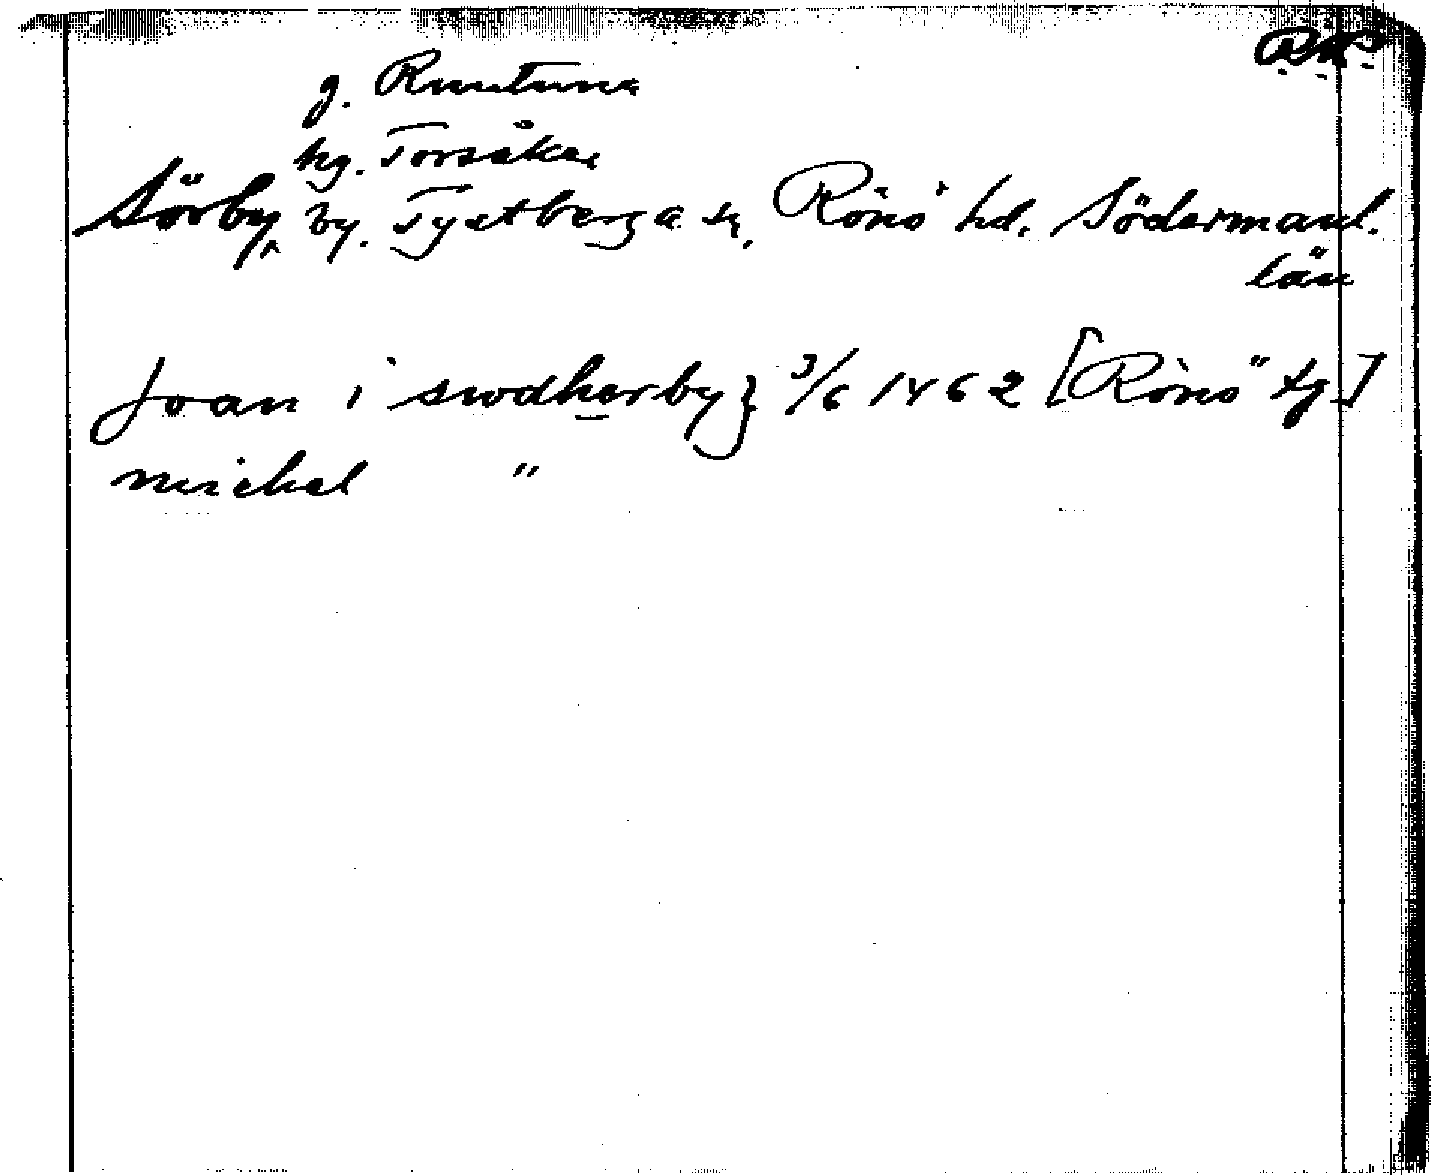 g. Runtuna
hg. Torsåker
Sörby, by. Tystberga sn. Rönö hd. Södermanl.
län
Joan i swdherby } 3/6 1462 [Rönö tg]
michel "